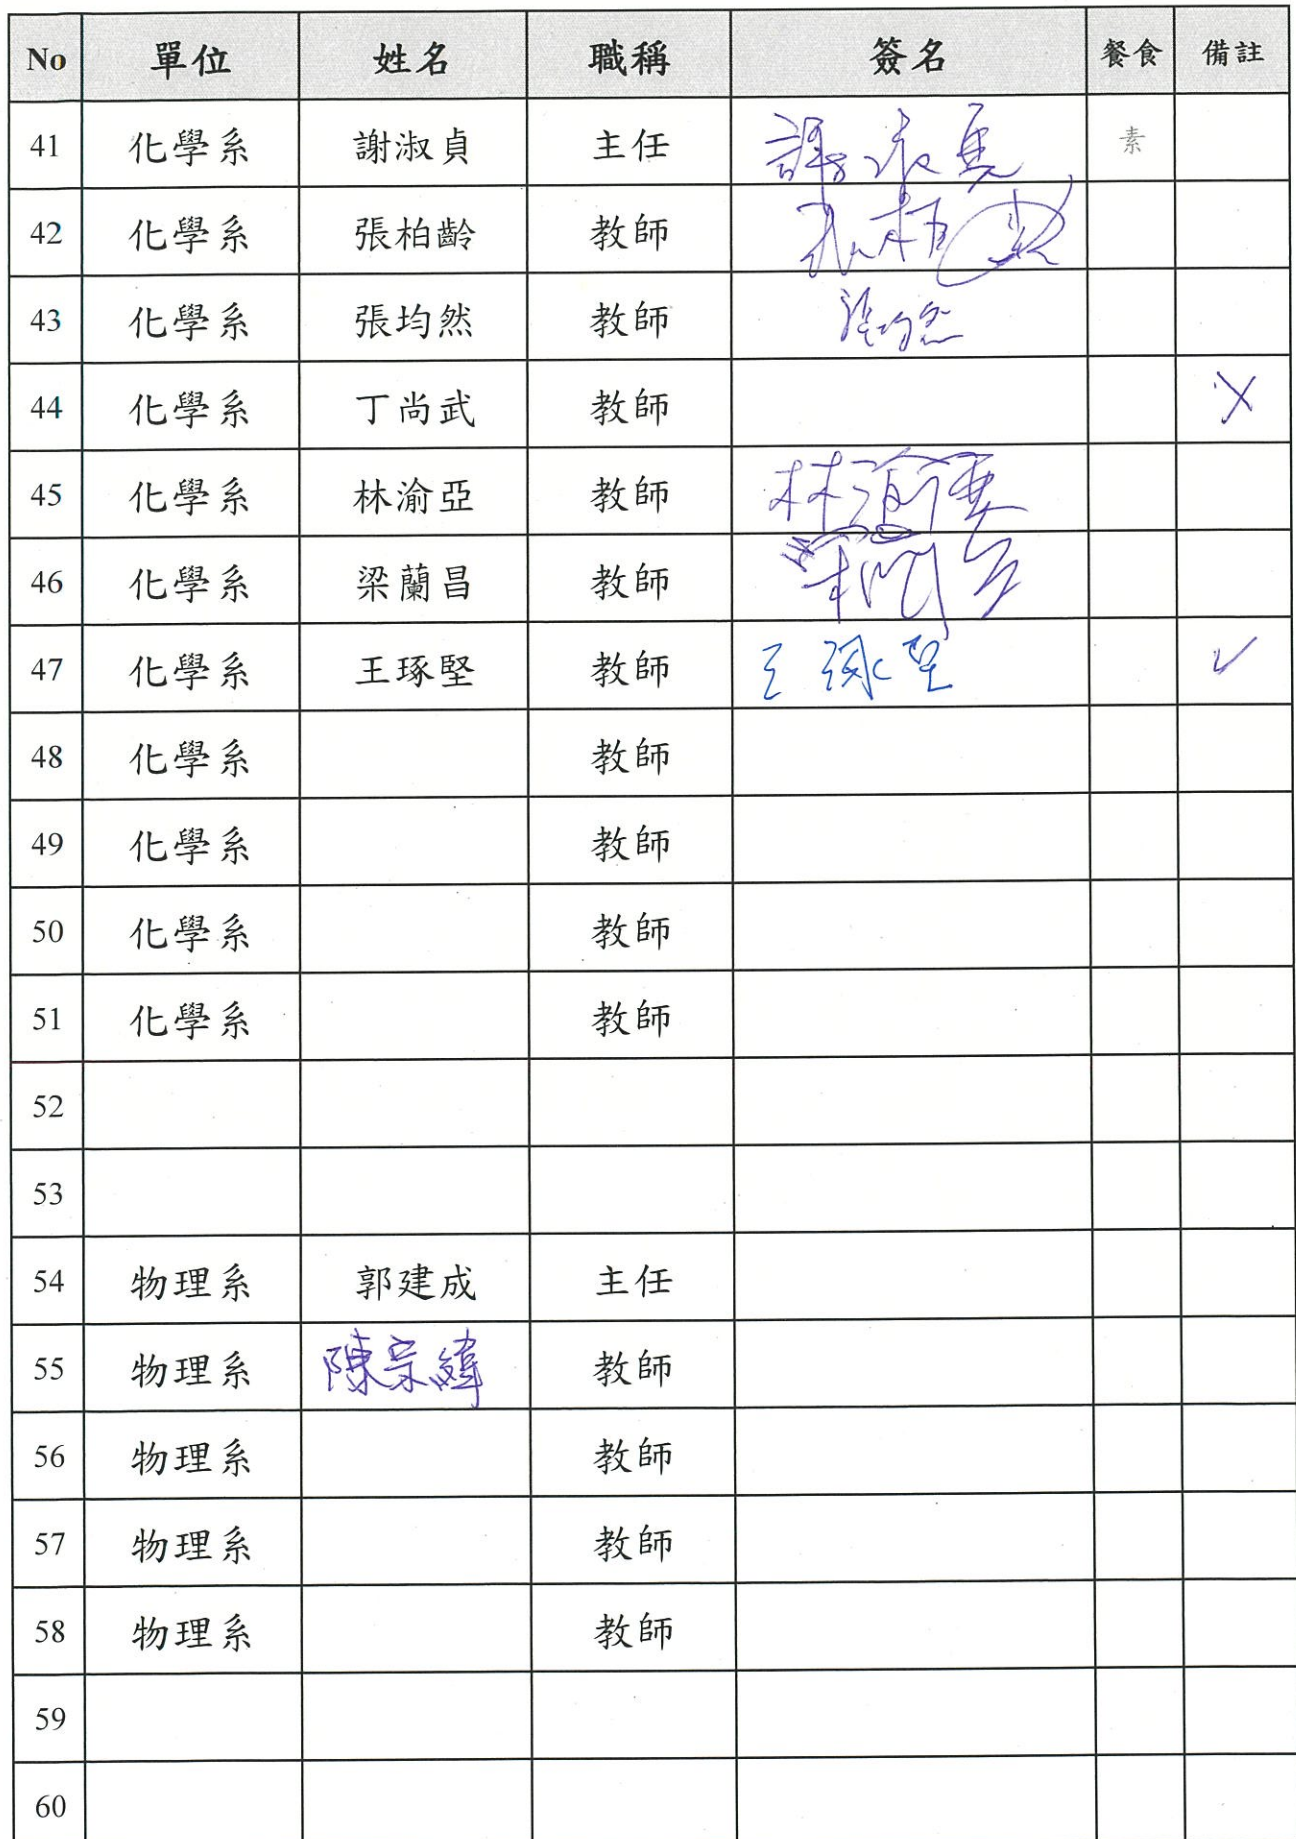 No 單位 姓名 職稱 簽名 餐食 備註
41 化學系 謝淑貞 主任 謝淑貞 素
42 化學系 張柏齡 教師 張柏齡
43 化學系 張均然 教師 張均然
44 化學系 丁尚武 教師 X
45 化學系 林渝亞 教師 林渝亞
46 化學系 梁蘭昌 教師 梁蘭昌
47 化學系 王琢堅 教師 王琢堅 ✓
48 化學系 教師
49 化學系 教師
50 化學系 教師
51 化學系 教師
52
53
54 物理系 郭建成 主任
55 物理系 陳宗緯 教師
56 物理系 教師
57 物理系 教師
58 物理系 教師
59
60